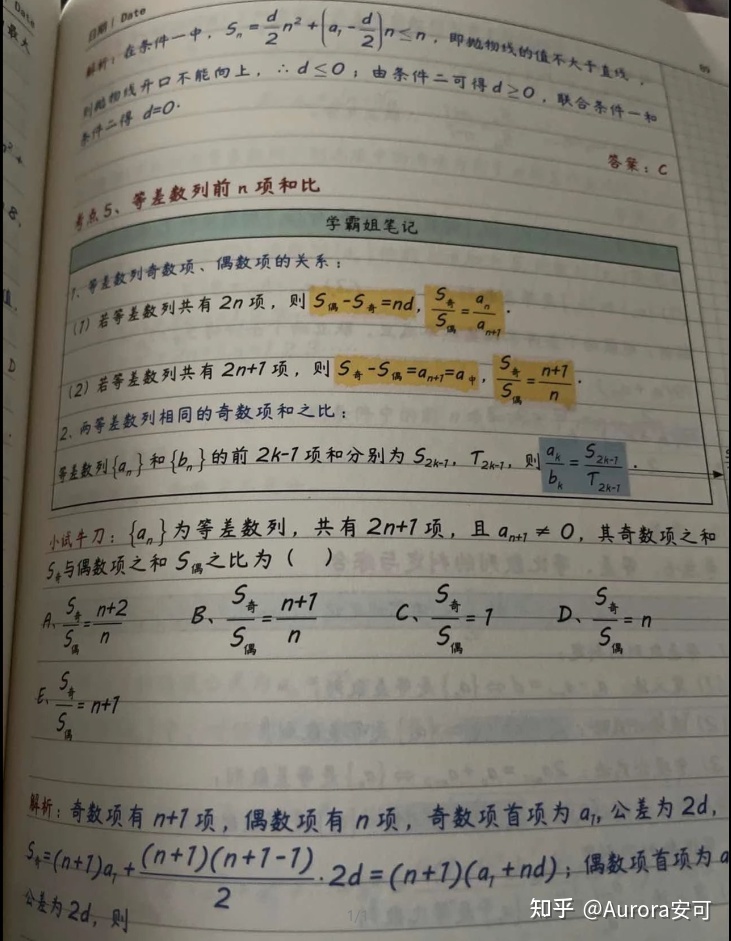 日期 | Date
解析：在条件一中，Sₙ=d/2 n²+(a₁-d/2)n≤n，即抛物线的值不大于直线，
则抛物线开口不能向上，∴d≤0；由条件二可得d≥0，联合条件一和
条件二得 d=0.
答案：C
考点5、等差数列前n项和比
学霸姐笔记
1、等差数列奇数项、偶数项的关系：
(1) 若等差数列共有2n项，则 S偶-S奇=nd，S奇/S偶=aₙ/aₙ₊₁.
(2) 若等差数列共有2n+1项，则 S奇-S偶=aₙ₊₁=a中，S奇/S偶=(n+1)/n.
2、两等差数列相同的奇数项和之比：
等差数列{aₙ}和{bₙ}的前2k-1项和分别为S₂ₖ₋₁，T₂ₖ₋₁，则 aₖ/bₖ=S₂ₖ₋₁/T₂ₖ₋₁.
小试牛刀：{aₙ}为等差数列，共有2n+1项，且aₙ₊₁≠0，其奇数项之和
S奇与偶数项之和S偶之比为（ ）
A、S奇/S偶=(n+2)/n B、S奇/S偶=(n+1)/n C、S奇/S偶=1 D、S奇/S偶=n
E、S奇/S偶=n+1
解析：奇数项有n+1项，偶数项有n项，奇数项首项为a₁，公差为2d，
S奇=(n+1)a₁+(n+1)(n+1-1)/2·2d=(n+1)(a₁+nd)；偶数项首项为a
公差为2d，则
1/1
知乎 @Aurora安可